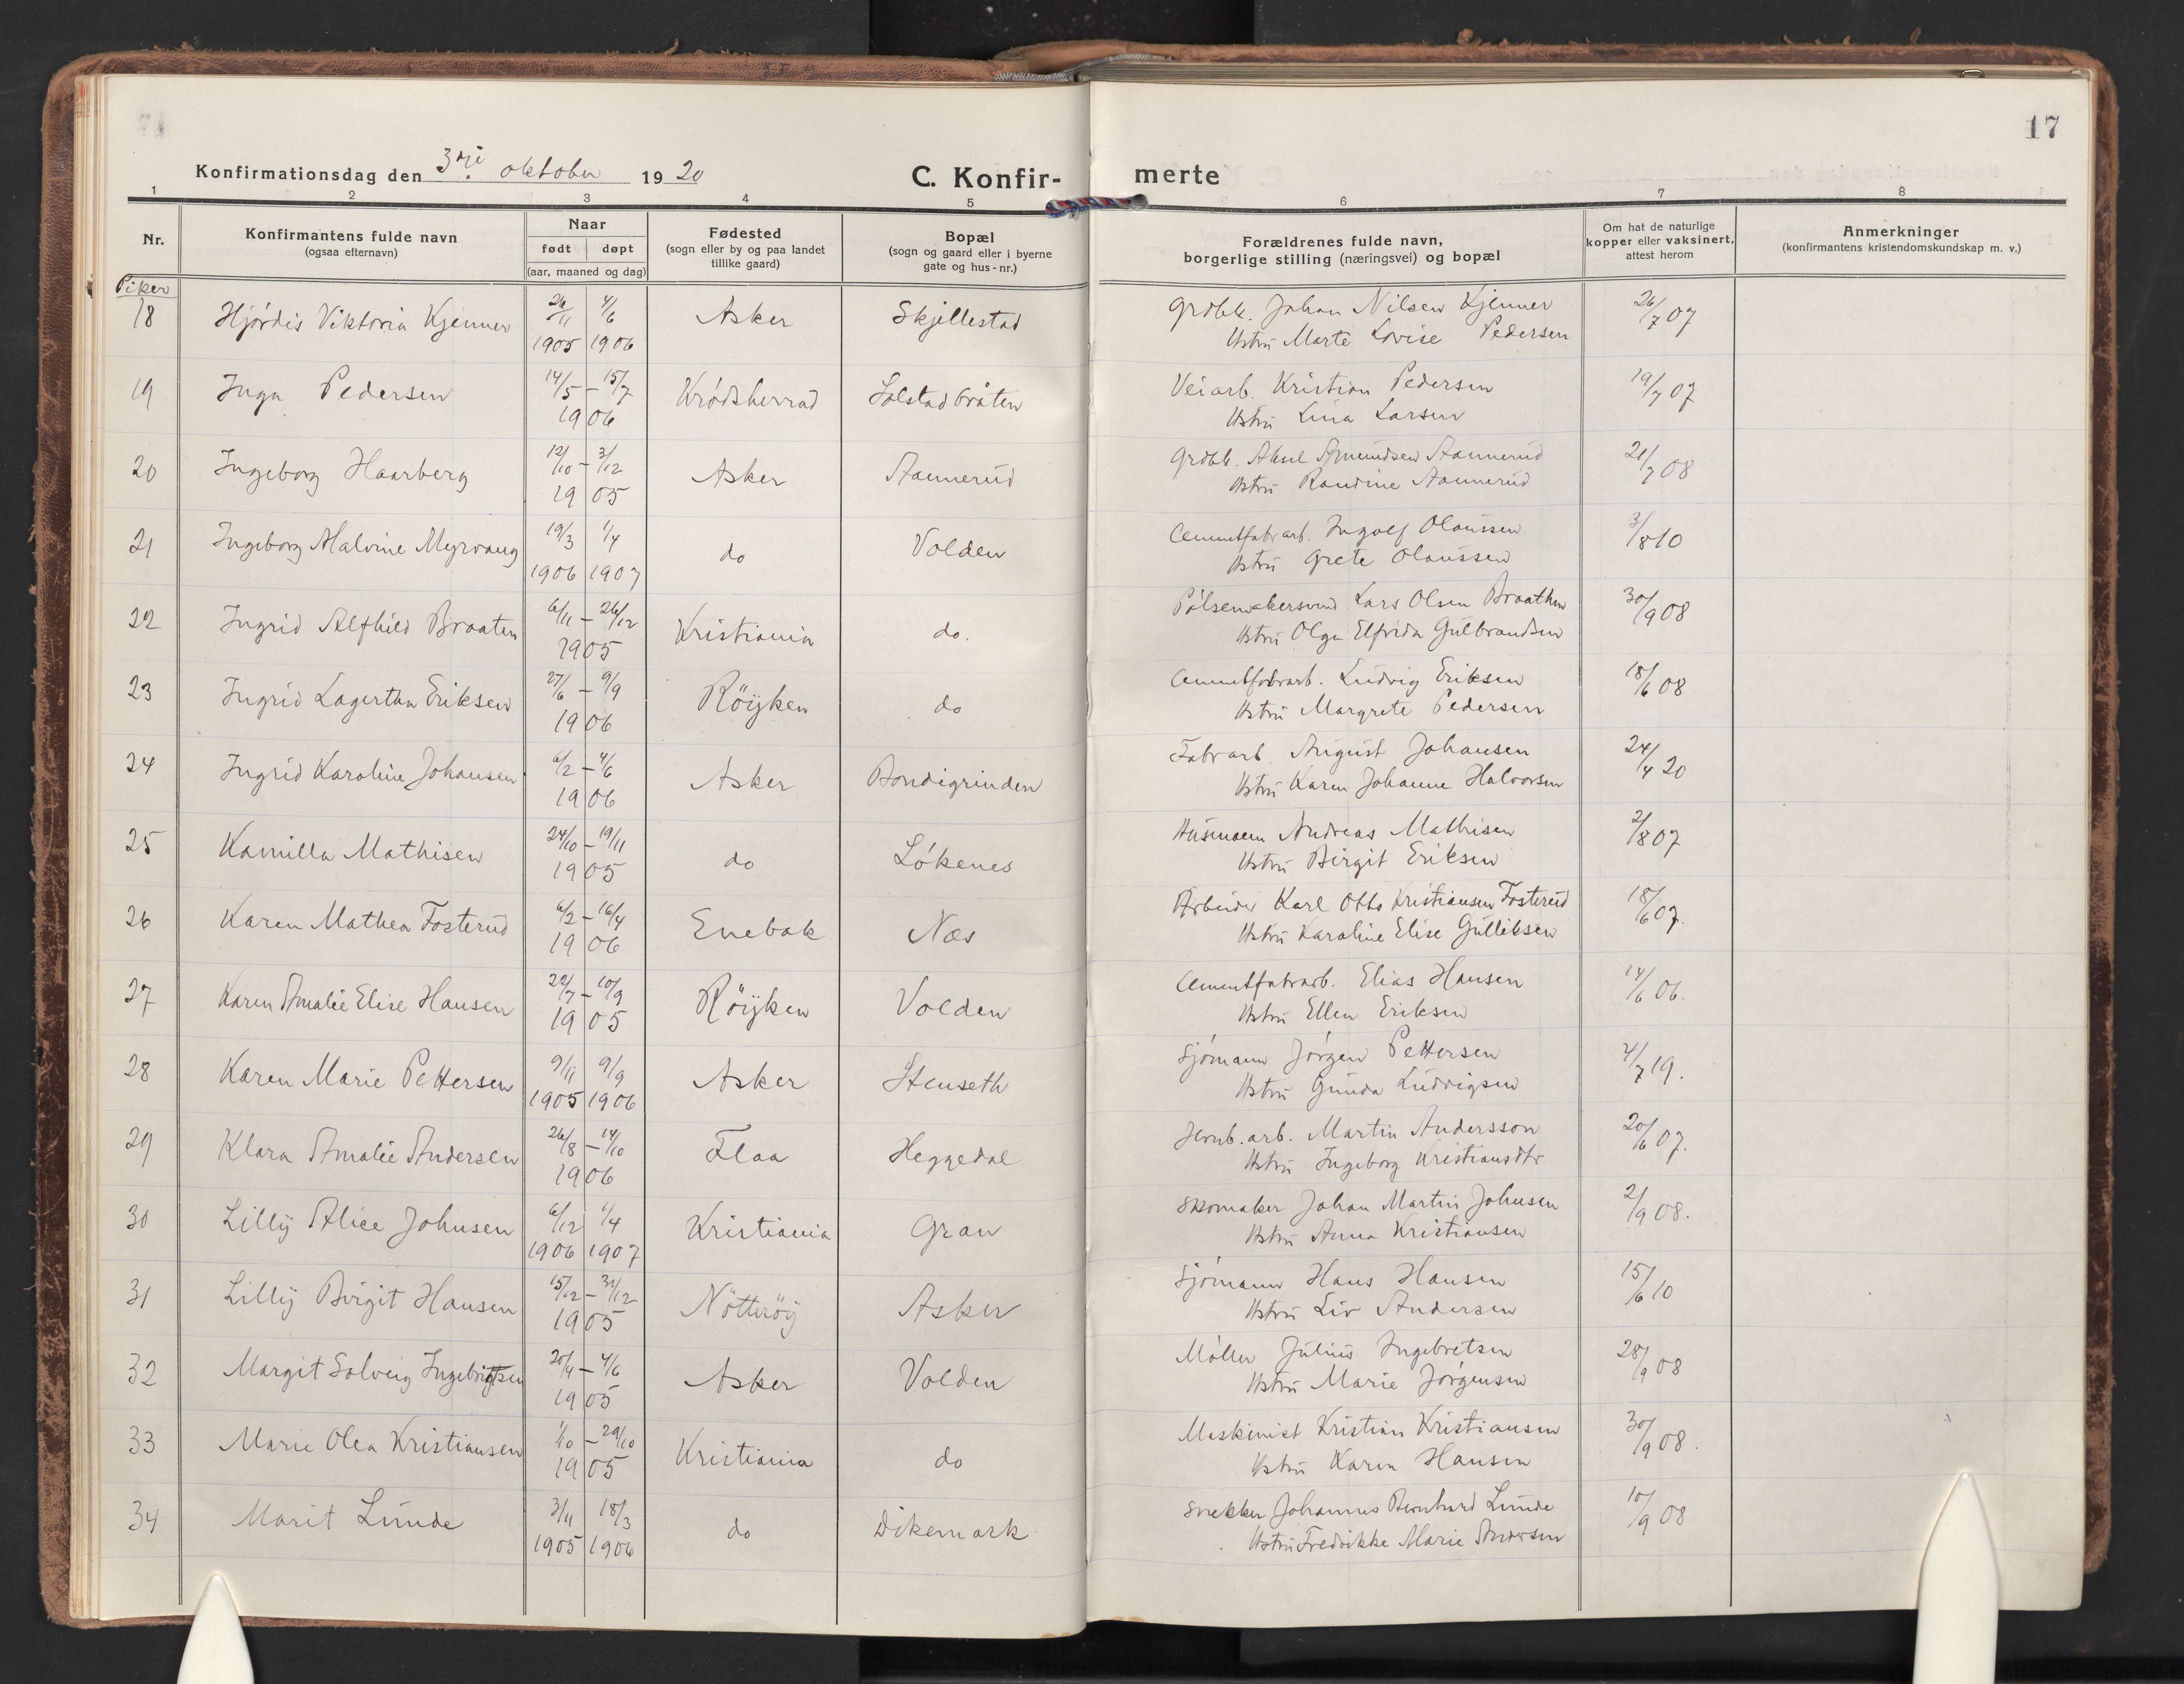 17
Konfirmationsdag den 3dje oktober 1920
C. Konfirmerte
1 2 3 4 5 6 7 8
Nr.
Konfirmantens fulde navn
(ogsaa efternavn)
Naar
født døpt
(aar, maaned og dag)
Fødested
(sogn eller by og paa landet
tillike gaard)
Bopæl
(sogn og gaard eller i byerne
gate og hus-nr.)
Forældrenes fulde navn,
borgerlige stilling (næringsvei) og bopæl
Om hat de naturlige
kopper eller vaksinert,
attest herom
Anmerkninger
(konfirmantens kristendomskundskap m. v.)
Piker
18 Hjørdis Viktoria Kjenner 26/11 1905 4/6 1906 Asker Skjellestad Grdbr. Johan Nilsen Kjenner 26/7 07
Hstru Marte Lovise Pedersen
19 Inga Pedersen 14/5 – 15/7 1906 Krødsherrad Solstadbråten Veiarb. Kristian Pedersen 19/7 07
Hstru Lina Larsen
20 Ingeborg Haarberg 12/10 – 3/12 1905 Asker Aannerud Grdbr. Aksel Amundsen Aannerud 21/7 08
Hstru Randine Aannerud
21 Ingeborg Malvine Myrvang 19/3 1906 1/4 1907 do Volden Cementfabrarb. Ingolf Olaussen 3/8 10
Hstru Grete Olaussen
22 Ingrid Alfhild Braaten 6/11 – 26/12 1905 Kristiania do. Pølsemakersvend Lars Olsen Braathen 30/9 08
Hstru Olga Elfrida Gulbrandsen
23 Ingrid Lagertha Eriksen 27/6 – 9/9 1906 Röyken do Cementfabrarb. Ludvig Eriksen 18/6 08
Hstru Margrete Pedersen
24 Ingrid Karoline Johansen 6/2 – 4/6 1906 Asker Bondigrinden Fabrarb. August Johansen 24/4 20
Hstru Karen Johanne Halvorsen
25 Kamilla Mathisen 24/10 – 19/11 1905 do Løkenes Husmann Andreas Mathisen 2/8 07
Hstru Birgit Eriksen
26 Karen Mathea Fosterud 6/2 – 16/4 1906 Enebak Nes Arbeider Karl Otto Kristiansen Fosterud 18/6 07.
Hstru Karoline Elise Gulliksen
27 Karen Amalie Elise Hansen 22/7 – 10/9 1905 Röyken Volden Cementfabrarb. Elias Hansen 14/6 06.
Hstru Ellen Eriksen
28 Karen Marie Pettersen 9/11 1905 9/9 1906 Asker Stenseth Sjømann Jørgen Pettersen 4/7 19.
Hstru Gunda Ludvigsen
29 Klara Amalie Andersen 26/8 – 14/10 1906 Flaa Heggedal Jernb.arb. Martin Andersson 20/6 07.
Hstru Ingeborg Kristiansdtr
30 Lilly Alice Johnsen 6/12 1906 1/4 1907 Kristiania Gran Skomaker Johan Martin Johnsen 2/9 08.
Hstru Anna Kristiansen
31 Lilly Birgit Hansen 15/12 – 31/12 1905 Nötteröy Asker Sjømann Hans Hansen 15/6 10
Hstru Liv Andersen
32 Margit Solveig Ingebrigtsen 20/4 – 4/6 1905 Asker Volden Møller Julius Ingebretsen 28/9 08
Hstru Marie Jørgensen
33 Marie Olea Kristiansen 1/10 – 29/10 1905 Kristiania do Maskinist Kristian Kristiansen 30/9 08.
Hstru Karen Hansen
34 Marit Lunde 3/11 1905 18/3 1906 do Dikemark Snekker Johannes Bernhard Lunde 10/9 08
Hstru Fredrikke Marie Andersen